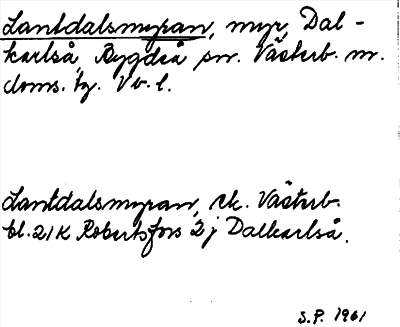 Lantdalsmyran, myr, Dal-
karlså, Bygdeå sn. Västerb. m.
doms. tg. Vb. l.
Lantdalsmyran, ek. Västerb.
bl. 21K Robertsfors 2j Dalkarlså.
S.P. 1961